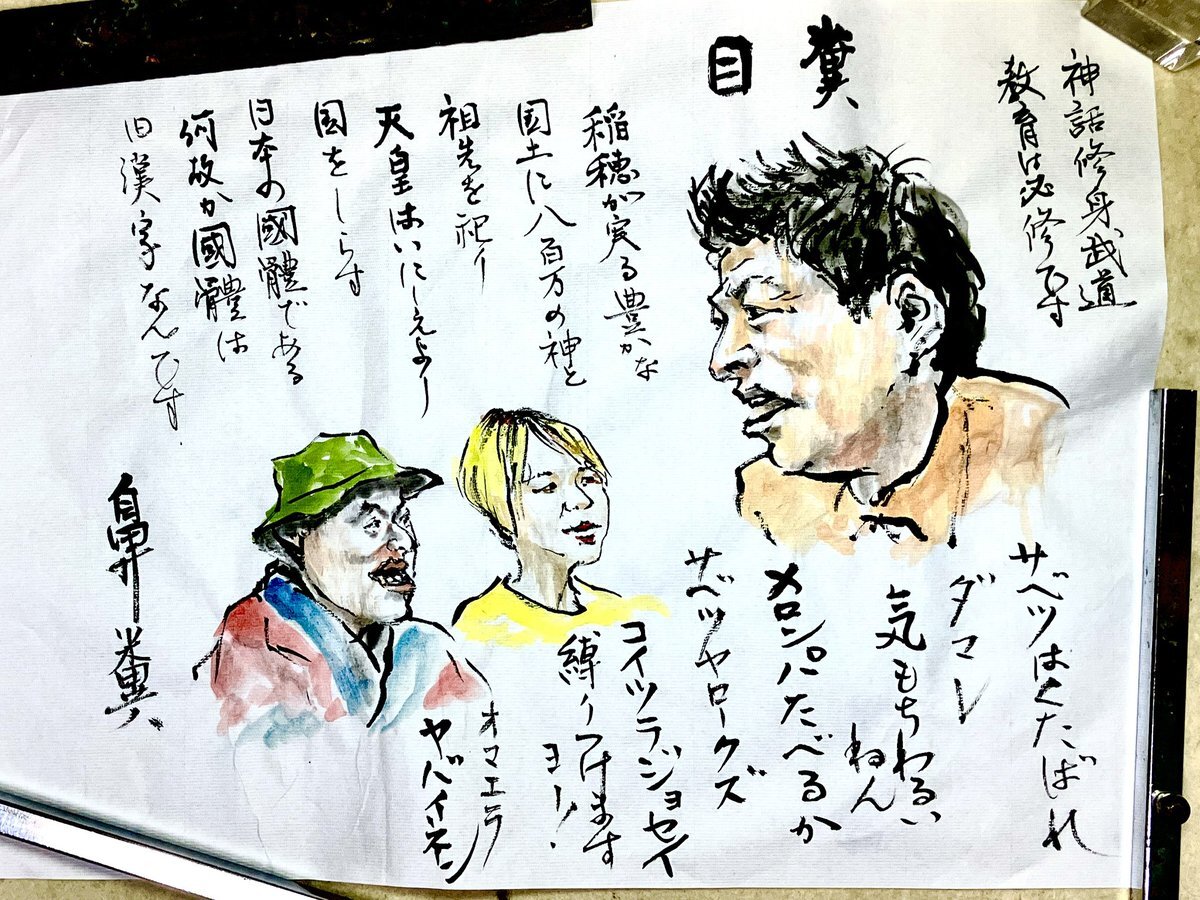 神話修身武道
教育は必修です
目糞
稲穂が実る豊かな
国土に八百万の神と
祖先を祀り
天皇はいにしえより
国をしらす
日本の國體である
何故か國體は
旧漢字なんです
鼻糞
サベツはくたばれ
ダマレ
気もちわるい
ねん
メロンパンたべるか
サベツヤロークズ
コイツラジョセイ
縛りつけます
ヨー!
オマエラ
ヤバイネン